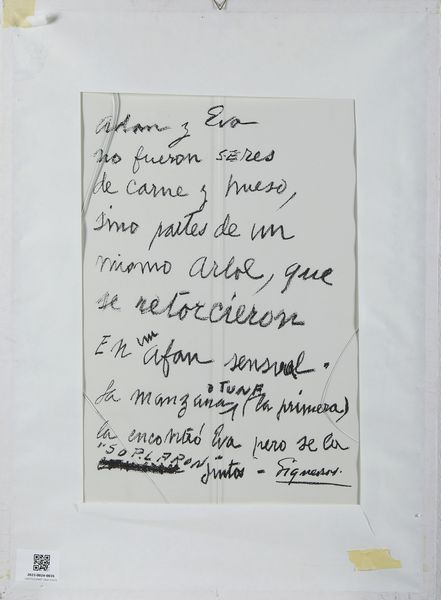 Adan y Eva
no fueron SERES
de carne y hueso,
sino partes de un
mismo arbol, que
se retorcieron
En un afan sensual.
La manzana, O TUNA (la primera)
la encontró Eva pero se la
"SOPLARON juntos - Siqueiros.
2023-0024-0031